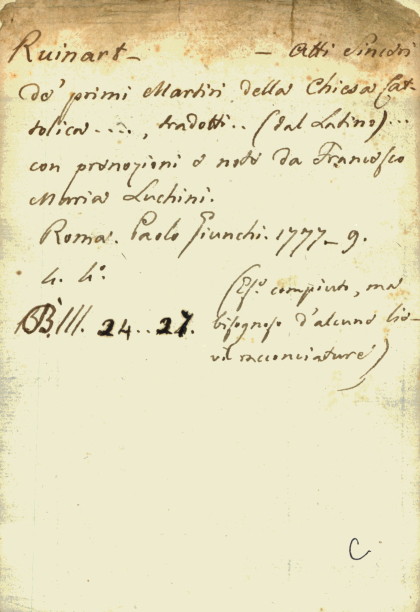 Ruinart - - Atti Sinceri
de' primi Martiri della Chiesa Cat-
tolica ...., tradotti .. (dal Latino)...
con prenozioni e note da Francesco
Maria Luchini.
Roma. Paolo Giunchi. 1777_9.
4. 4°.
(Es.° compiuto, ma
BB. III. 24..27. bisognoso d'alcune lie-
vi racconciature)
C